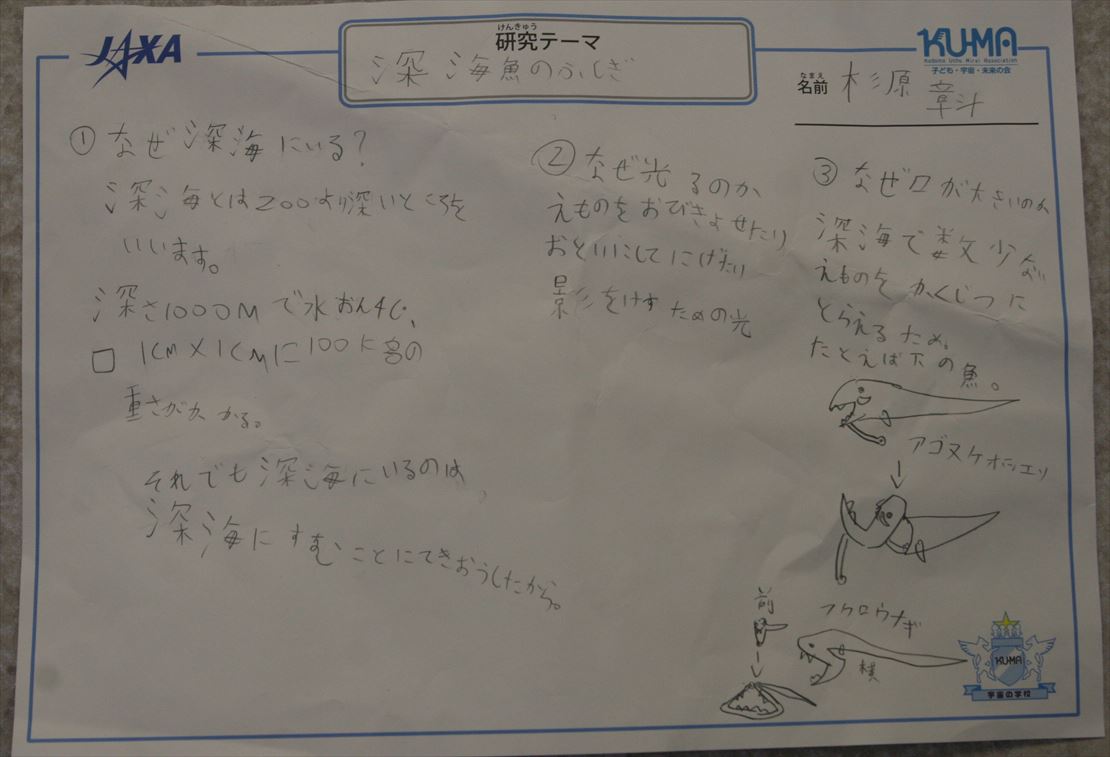 JAXA
けんきゅう
研究テーマ
深海魚のふしぎ
KU-MA
Kodomo Uchu Mirai Association
子ども・宇宙・未来の会
なまえ
名前 杉原
章斗
① なぜ深海にいる?
深海とは200より深いところを
いいます。
深さ1000Mで水おん4℃、
□ 1cm×1cMに100K
重さがかかる。
それでも深海にいるのは、
深海にすむことにてきおうしたから。
② なぜ光るのか
えものをおびきよせたり
おとりにしてにげたり
影をけすための光
③ なぜ口が大きいのか
深海で数少ない
えものをかくじつに
とらえるため。
たとえば下の魚。
アゴヌケホシエソ
↓
フクロウナギ
前
↓
横
KUMA
宇宙の学校